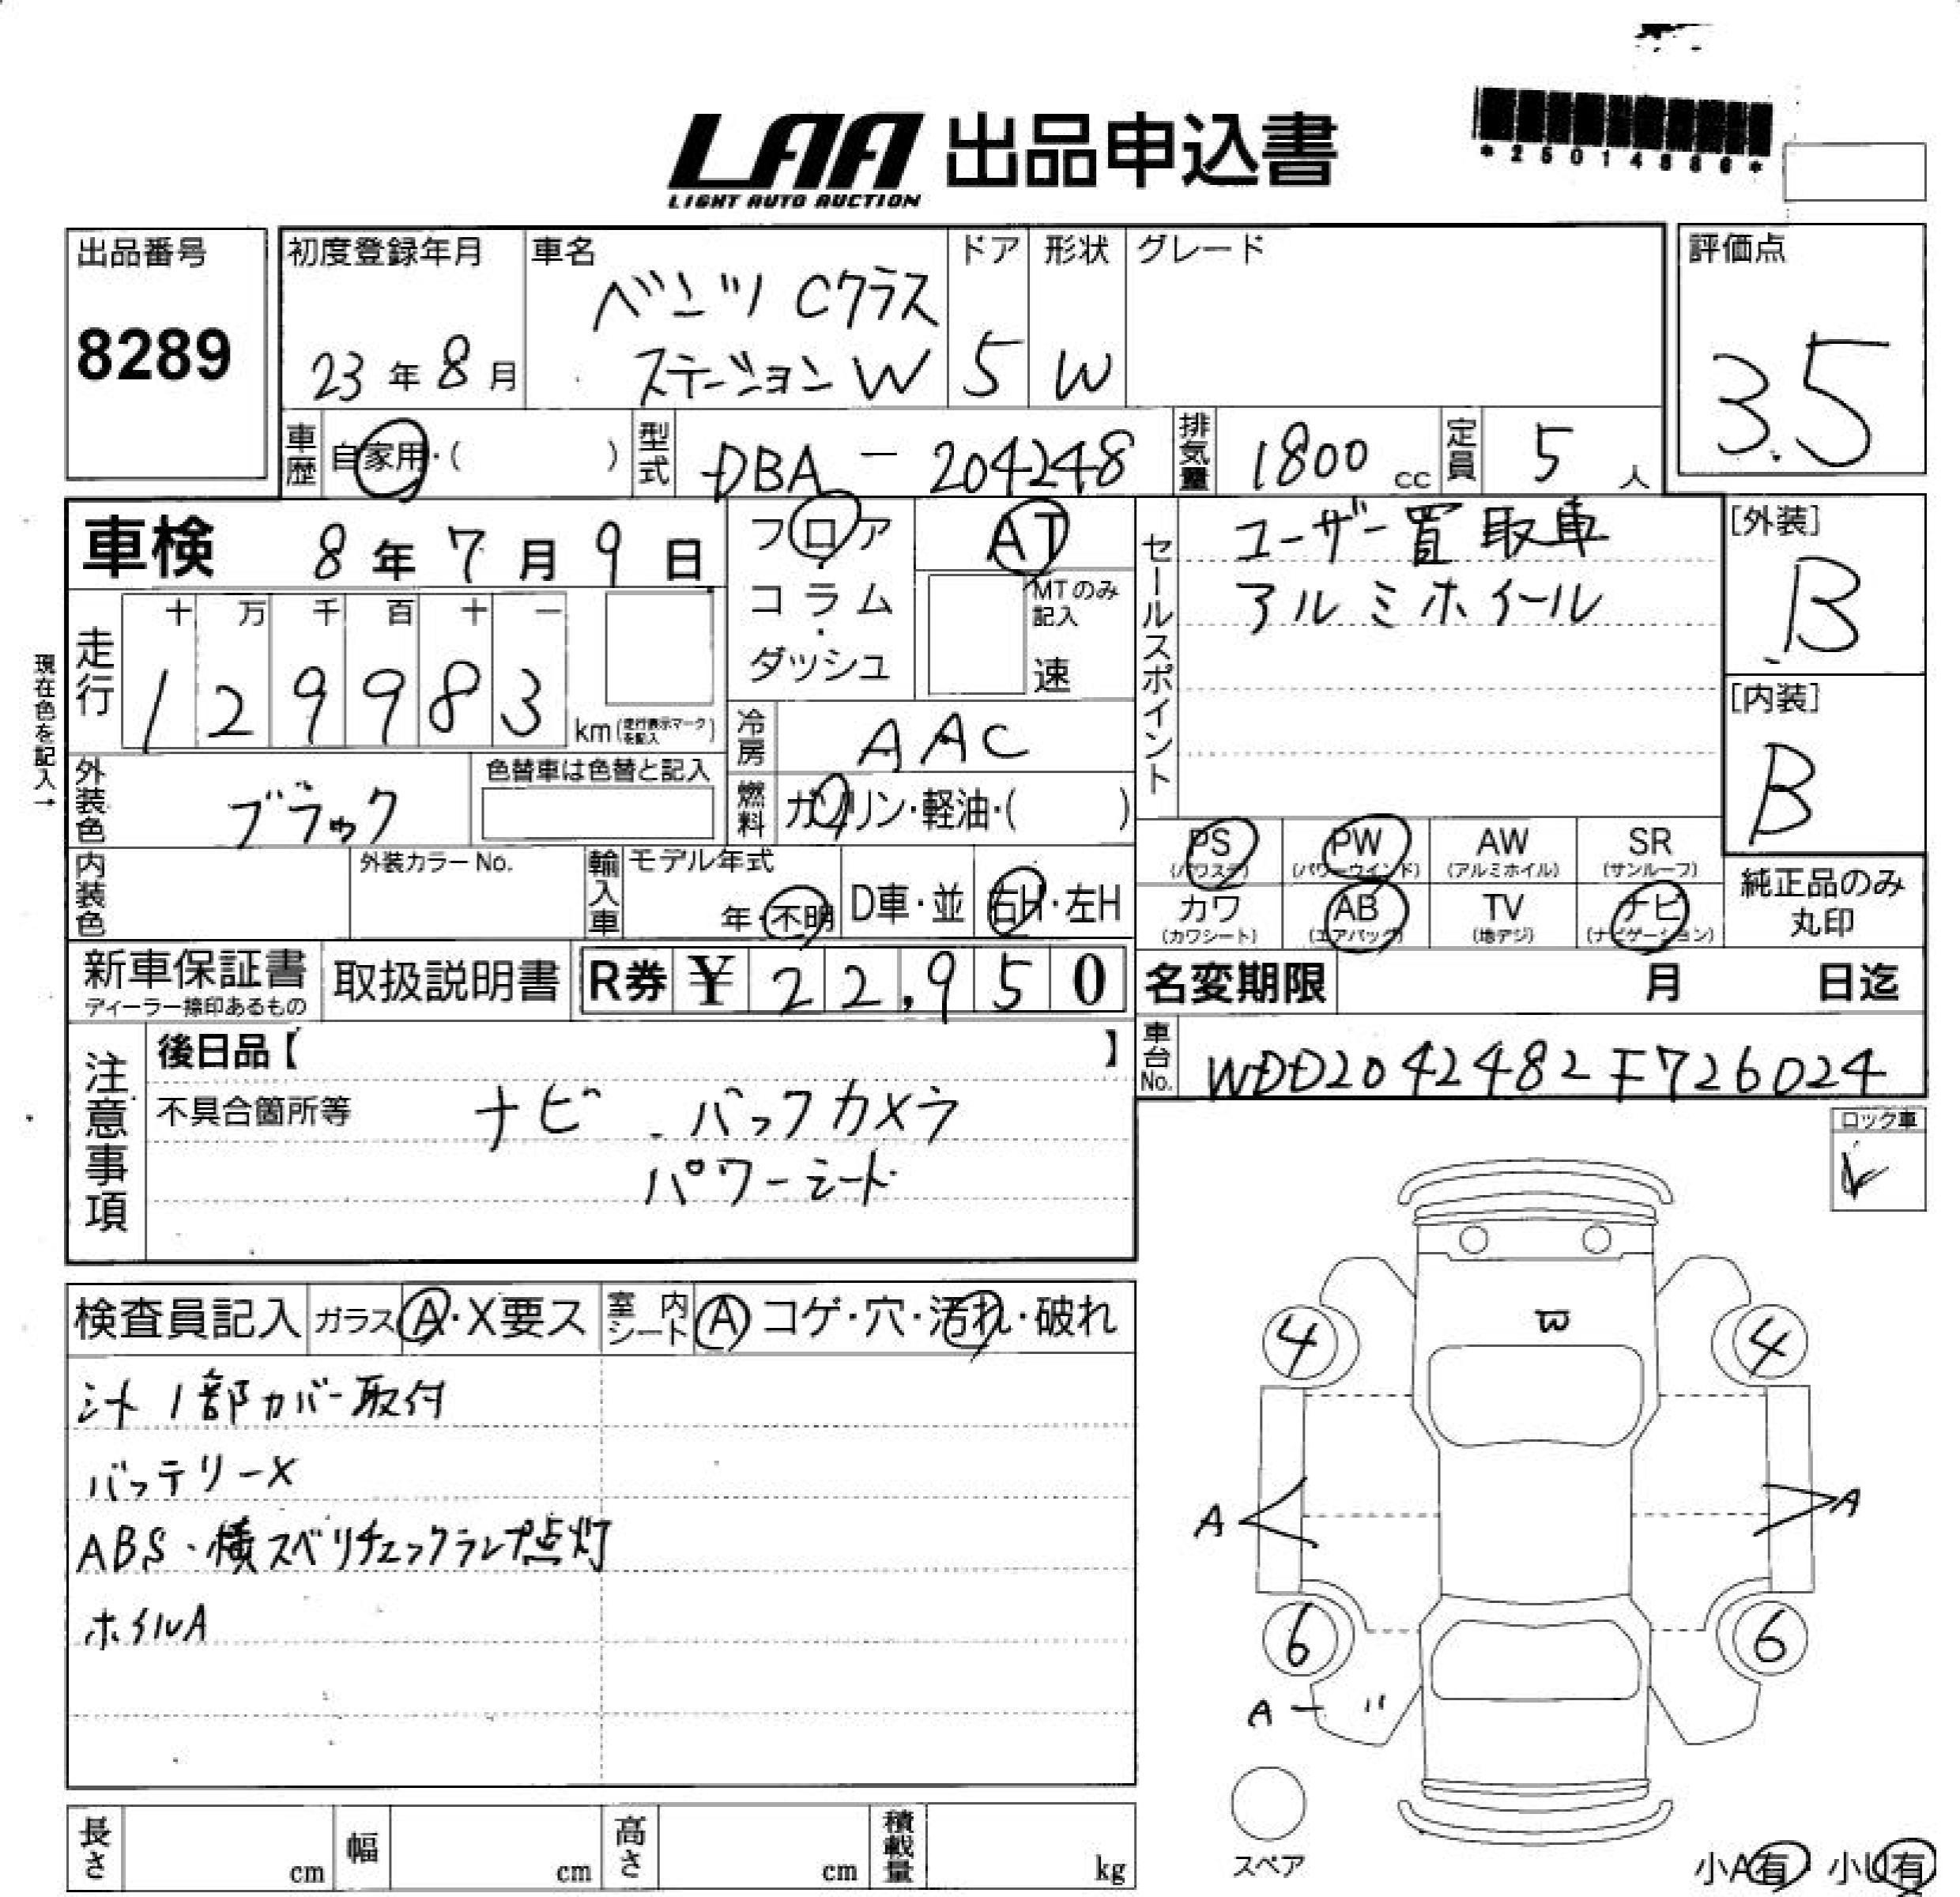 LAA 出品申込書
LIGHT AUTO AUCTION
出品番号
8289
初度登録年月
23年8月
車名
ベンツ Cクラス
ステーションW
ドア
5
形状
W
グレード
評価点
3.5
車歴 自家用・( )
型式 DBA-204248
排気量 1800 cc
定員 5 人
車検 8年7月9日
フロア・コラム・ダッシュ
AT
MTのみ記入
速
セールスポイント
ユーザー買取車
アルミホイール
[外装]
B
[内装]
B
現在色を記入→
走行
十 万 千 百 十 一
1 2 9 9 8 3 km(走行表示マークを記入)
冷房 AAC
外装色 ブラック
色替車は色替と記入
燃料 ガソリン・軽油・( )
PS (パワステ) PW (パワーウインド) AW (アルミホイル) SR (サンルーフ)
カワ (カワシート) AB (エアバック) TV (地デジ) ナビ (ナビゲーション)
純正品のみ
丸印
内装色
外装カラーNo.
輸入車 モデル年式
年・不明 D車・並 右H・左H
新車保証書
ディーラー捺印あるもの
取扱説明書
R券 ¥22,950
名変期限 月 日迄
車台No. WDD2042482F726024
注意事項
後日品【 】
不具合箇所等 ナビ . バックカメラ
パワーシート
ロック車
検査員記入 ガラス A・X要ス 室内シート A コゲ・穴・汚れ・破れ
シート1部カバー取付
バッテリーX
ABS・横スベリチェックランプ点灯
ホイルA
W
4 4
A A
6 6
A - 〃
スペア
長さ cm 幅 cm 高さ cm 積載量 kg
小A有 小U有